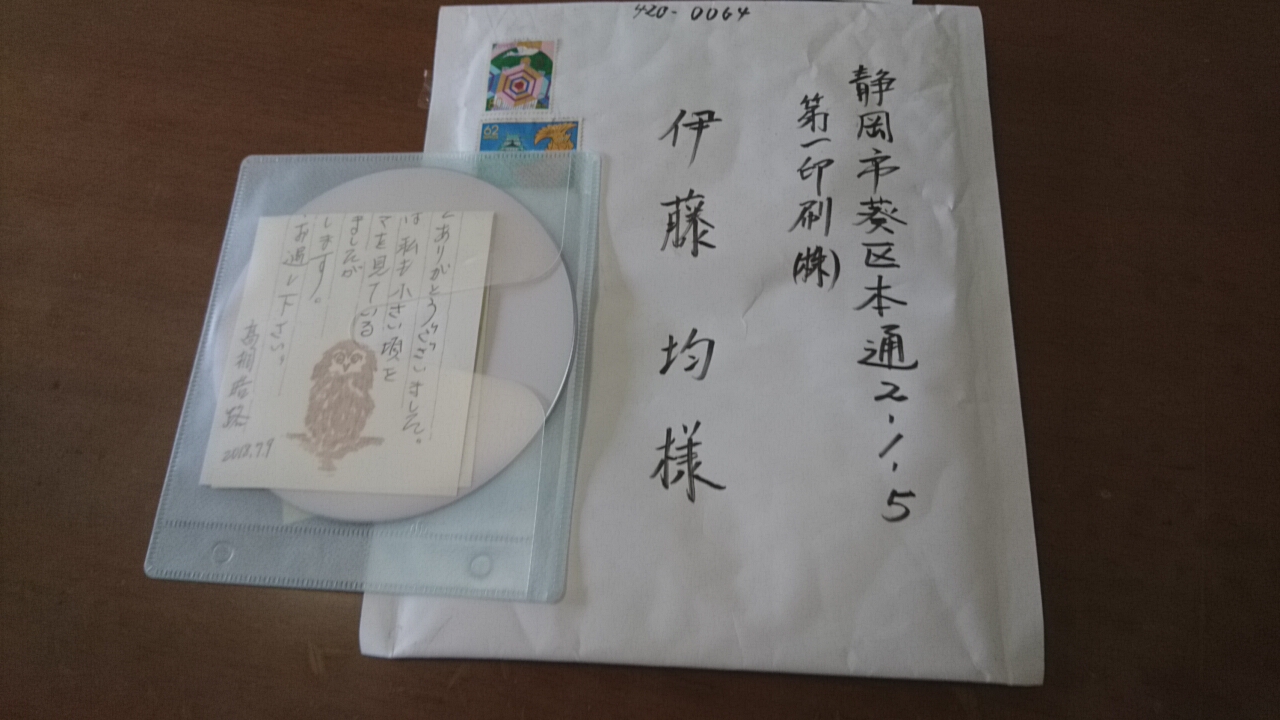 420-0064
静岡市葵区本通2.1.5
第一印刷(株)
伊藤均様
62
くありがとうございました。
は私も小さい頃を
マを見ている
ましたが
します。
お過し下さい。
2018.7.9